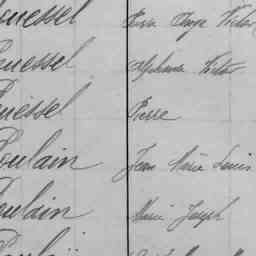 ouessel Pierre Ange Victor
ouessel Alphonse Victor
ouessel Pierre
Poulain Jean Marie Louis
Poulain Marie Joseph